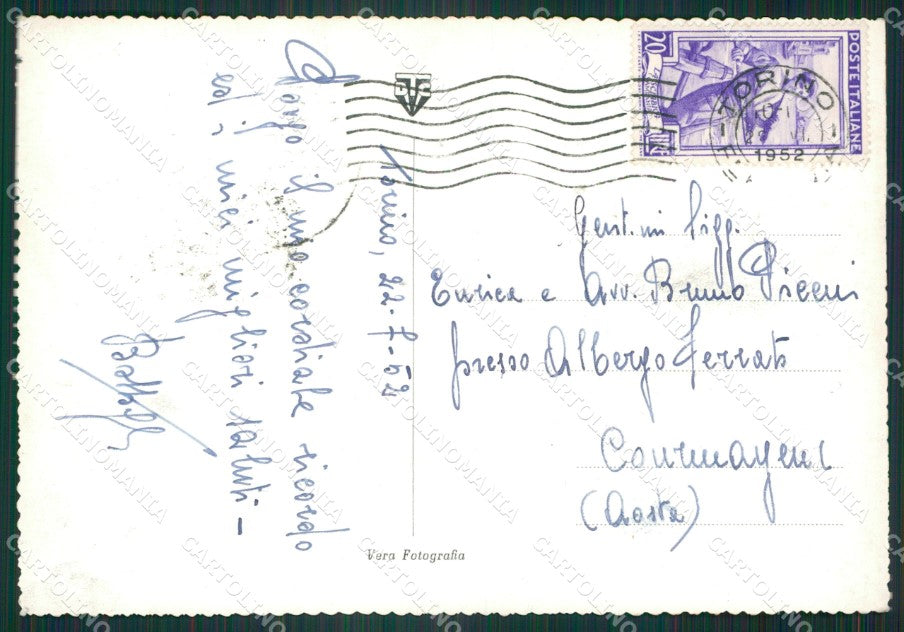 Torino, 22-7-52
Porgo il mio cordiale ricordo
ed i miei migliori saluti -
POSTE ITALIANE
20
TORINO
1952
Gent.mi Sigg.
Enrica e Avv. Bruno Piceni
presso Albergo Ferrato
Courmayeur
(Aosta)
Vera Fotografia
CARTOLINOMANIA